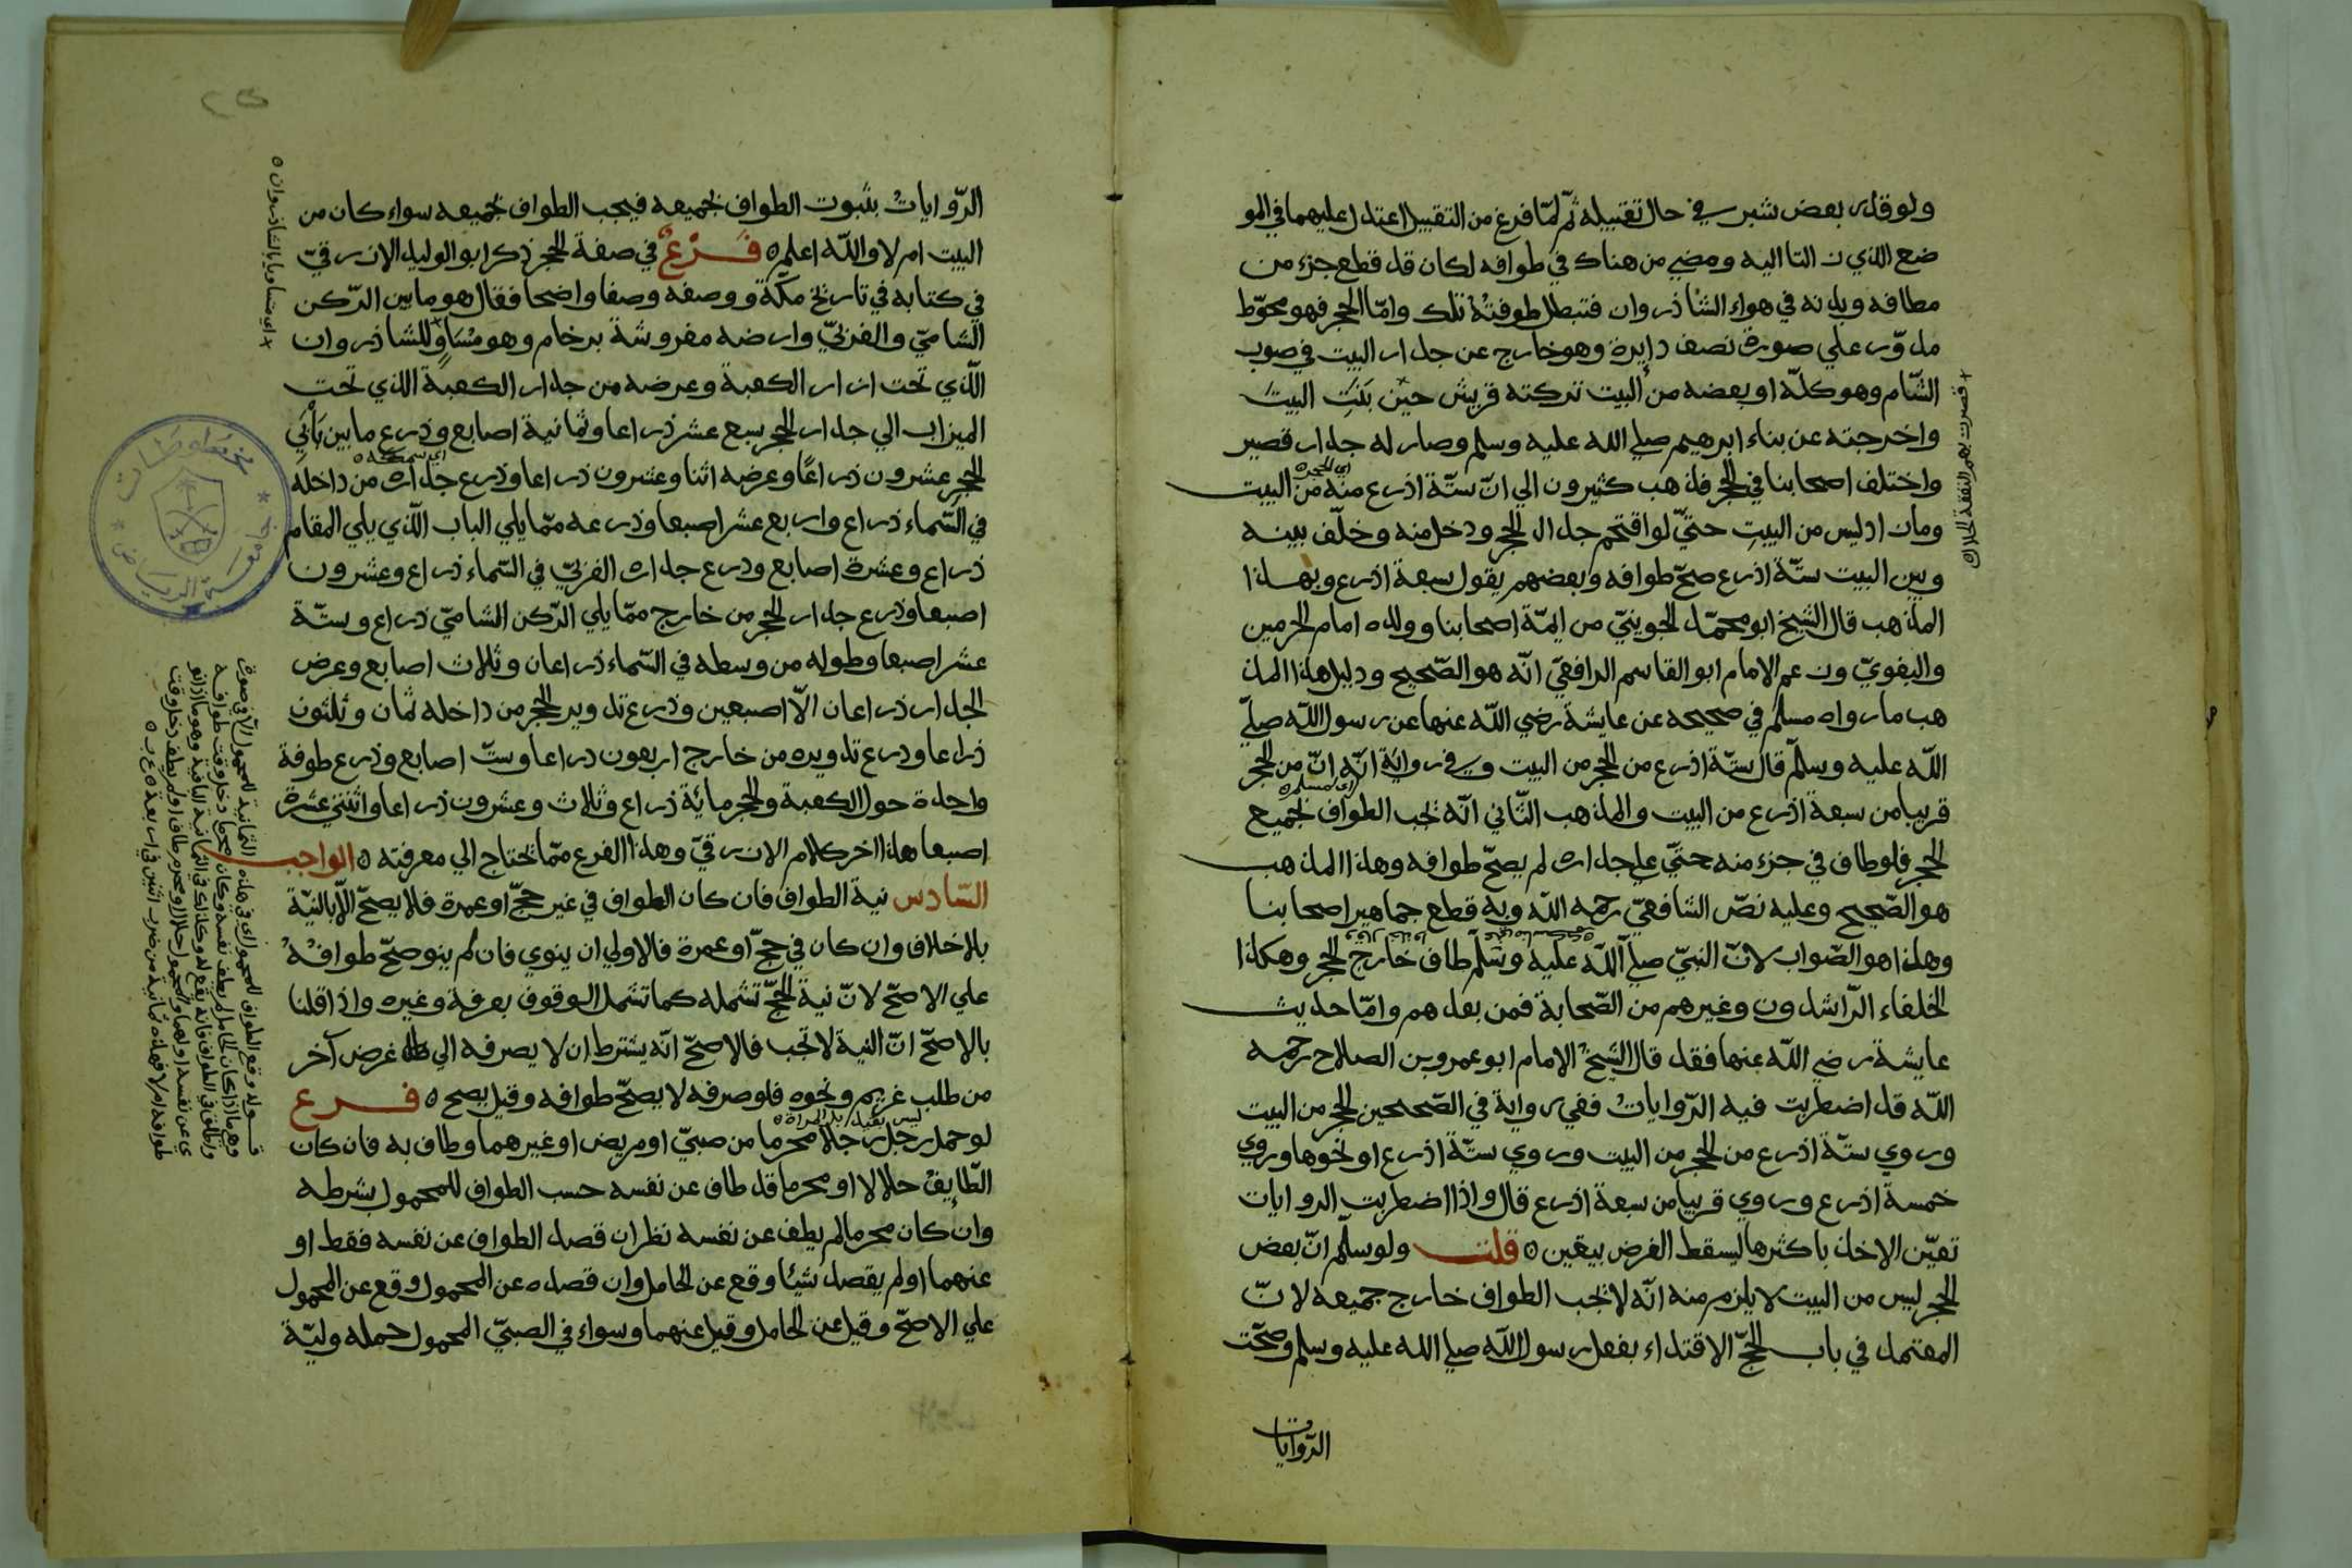 ولو قدر بعض شبر في حال تقبيله ثم لمّا فرغ من التقبيل اعتدل عليهما في المو
ضع الذي زالتا اليه ومضي من هناك في طوافه لكان قد قطع جزء من
مطافه وبدنه في هواء الشاذروان فتبطل طوفته تلك وامّا الحجر فهو محوّط
مدوّر علي صورة نصف دايرة وهو خارج عن جدار البيت في صوب
الشّام وهو كلّه او بعضه من البيت تركته قريش حين بَنَتِ البيت
واخرجته عن بناء ابرهيم صلي الله عليه وسلم وصار له جدار قصير
واختلف اصحابنا في الحجر فذهب كثيرون الي انّ ستّة اذرع منه من البيت
اي الحجر
ومازاد ليس من البيتِ حتيّ لو اقتحم جدار الحجر ودخل منه وخلّف بينه
وبين البيت ستّة اذرع صحّ طوافه وبعضهم يقول سبعة اذرع وبهذا
المذهب قال الشيخ ابو محمّد الجوينيّ من ايمّة اصحابنا وولده امام الحرمين
والبغويّ وزعم الامام ابو القاسم الرافعيّ انّه هو الصّحيح ودليل هذا المذ
هب ما رواه مسلم في صحيحه عن عايشة رضي الله عنها عن رسول الله صليّ
الله عليه وسلّم قال ستّة اذرع من الحجر من البيت وفي رواية انّه انّ من الحجر
اي لمسلم
قريبا من سبعة اذرع من البيت والمذهب الثّاني انّه يجب الطواف بجميع
الحجر فلو طاف في جزء منه حتيّ علي جداره لم يصحّ طوافه وهذا المذهب
هو الصّحيح وعليه نصّ الشافعيّ رحمه الله وبه قطع جماهير اصحابنا
وهذا هو الصّواب لانّ النبيّ صليّ الله عليه وسلّم طاف خارج الحجر وهكذا
الخلفاء الرّاشدون وغيرهم من الصّحابة فمن بعدهم وامّا حديث
عايشة رضي الله عنها فقد قال الشيخ الامام ابو عمرو بن الصلاح رحمه
الله قد اضطربت فيه الرّوايات ففي رواية في الصّحيحين الحجر من البيت
وروي ستّة اذرع من الحجر من البيت وروي ستّة اذرع او نحوها وروي
خمسة اذرع وروي قريبا من سبعة اذرع قال واذا اضطربت الروايات
تعيّن الاخذ باكثرها ليسقط الفرض بيقين ه قلت ولو سلّم انّ بعض
الحجر ليس من البيت لا يلزم منه انّه لا تجب الطواف خارج جميعه لانّ
المعتمد في باب الحجّ الاقتداء بفعل رسول الله صلي الله عليه وسلم وصحّت
الرّوايات
الرّوايات بثبوت الطواف بجميعه فيجب الطواف بجميعه سواء كان من
البيت ام لا والله اعلم ه فَرْعٌ في صفة الحجر ذكر ابو الوليد الازرقيّ
في كتابه في تاريخ مكّة ووصفه وصفا واضحا فقال هو مابين الرّكن
الشاميّ والغربيّ وارضه مفروشة برخام وهو مُسَاوٍ للشاذروان
+ اي مساويا بالشاذروان ه
الّذي تحت ازار الكعبة وعرضه من جدار الكعبة الذي تحت
الميزاب الي جدار الحجر سبع عشر ذراعا وثمانية اصابع وذرع مابين بَابَيِ
الحجر عشرون ذراعًا وعرضه اثنا وعشرون ذراعا وذرع جداره من داخله
اي سمكه ه
في السّماء ذراع واربع عشر اصبعا وذرعه ممّا يلي الباب الّذي يلي المقام
ذراع وعشرة اصابع وذرع جداره الغربيّ في السّماء ذراع وعشرون
اصبعا وذرع جدار الحجر من خارج ممّا يلي الرّكن الشاميّ ذراع وستّة
عشر اصبعا وطوله من وسطه في السّماء ذراعان وثلاث اصابع وعرض
الجدار ذراعان الّا اصبعين وذرع تدوير الحجر من داخله ثمان وثلثون
ذراعا وذرع تدويره من خارج اربعون ذراعا وستّ اصابع وذرع طوفة
واحدة حول الكعبة والحجر مائة ذراع وثلاث وعشرون ذراعا واثنتي عشرة
اصبعا هذا اخر كلام الازرقيّ وهذا الفرع ممّا يحتاج الي معرفته ه الواجب
السّادس نية الطواف فان كان الطواف في غير حجّ او عمرة فلا يصحّ الّا بالنيّة
بلا خلاف وان كان في حجّ او عمرة فالاولي ان ينوي فان لم ينو صحّ طوافه
علي الاصحّ لانّ نية الحجّ تشمله كما تشمل الوقوف بعرفة وغيره واذا قلنا
بالاصحّ انّ النية لا تجب فالاصحّ انّه يشترط ان لا يصرفه الي غرض آخر
من طلب غريم ونحوه فلو صرفه لا يصحّ طوافه وقيل يصح ه فرع
ليس بقيد بل المراة ه
لو حمل رجل رجلا محرما من صبيّ او مريض او غيرهما وطاف به فان كان
الطّايف حلالا او محرما قد طاف عن نفسه حسب الطواف للمحمول بشرطه
وان كان محرما لم يطف عن نفسه نظر ان قصد الطواف عن نفسه فقط او
عنهما او لم يقصد شيئا وقع عن الحامل وان قصده عن المحمول وقع عن المحمول
علي الاصحّ وقيل عن الحامل وقيل عنهما وسواء في الصبيّ المحمول حمله وليّة